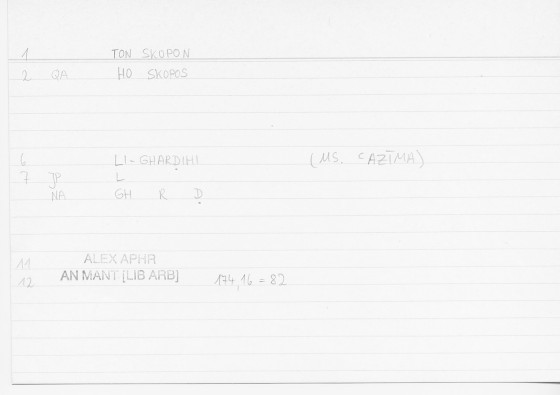 1 TON SKOPON
2 QA HO SKOPOS
6 LI-GHARḌIHI (MS. ʿAZĪMA)
7 JP L
NA GH R Ḍ
11 ALEX APHR
12 AN MANT [LIB ARB] 174,16 = 82